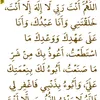 اللَّهُمَّ أَنْتَ رَبِّي لَا إِلَهَ إِلَّا أَنْتَ،
خَلَقْتَنِي وَأَنَا عَبْدُكَ، وَأَنَا
عَلَى عَهْدِكَ وَوَعْدِكَ مَا
اسْتَطَعْتُ، أَعُوذُ بِكَ مِنْ شَرِّ
مَا صَنَعْتُ، أَبُوءُ لَكَ بِنِعْمَتِكَ
عَلَيَّ، وَأَبُوءُ بِذَنْبِي فَاغْفِرْ لِي